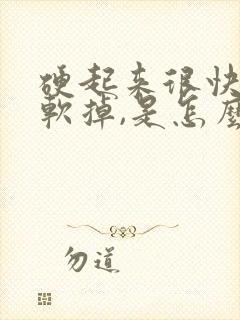 硬起来很快
軟掉,是怎麼
勿道